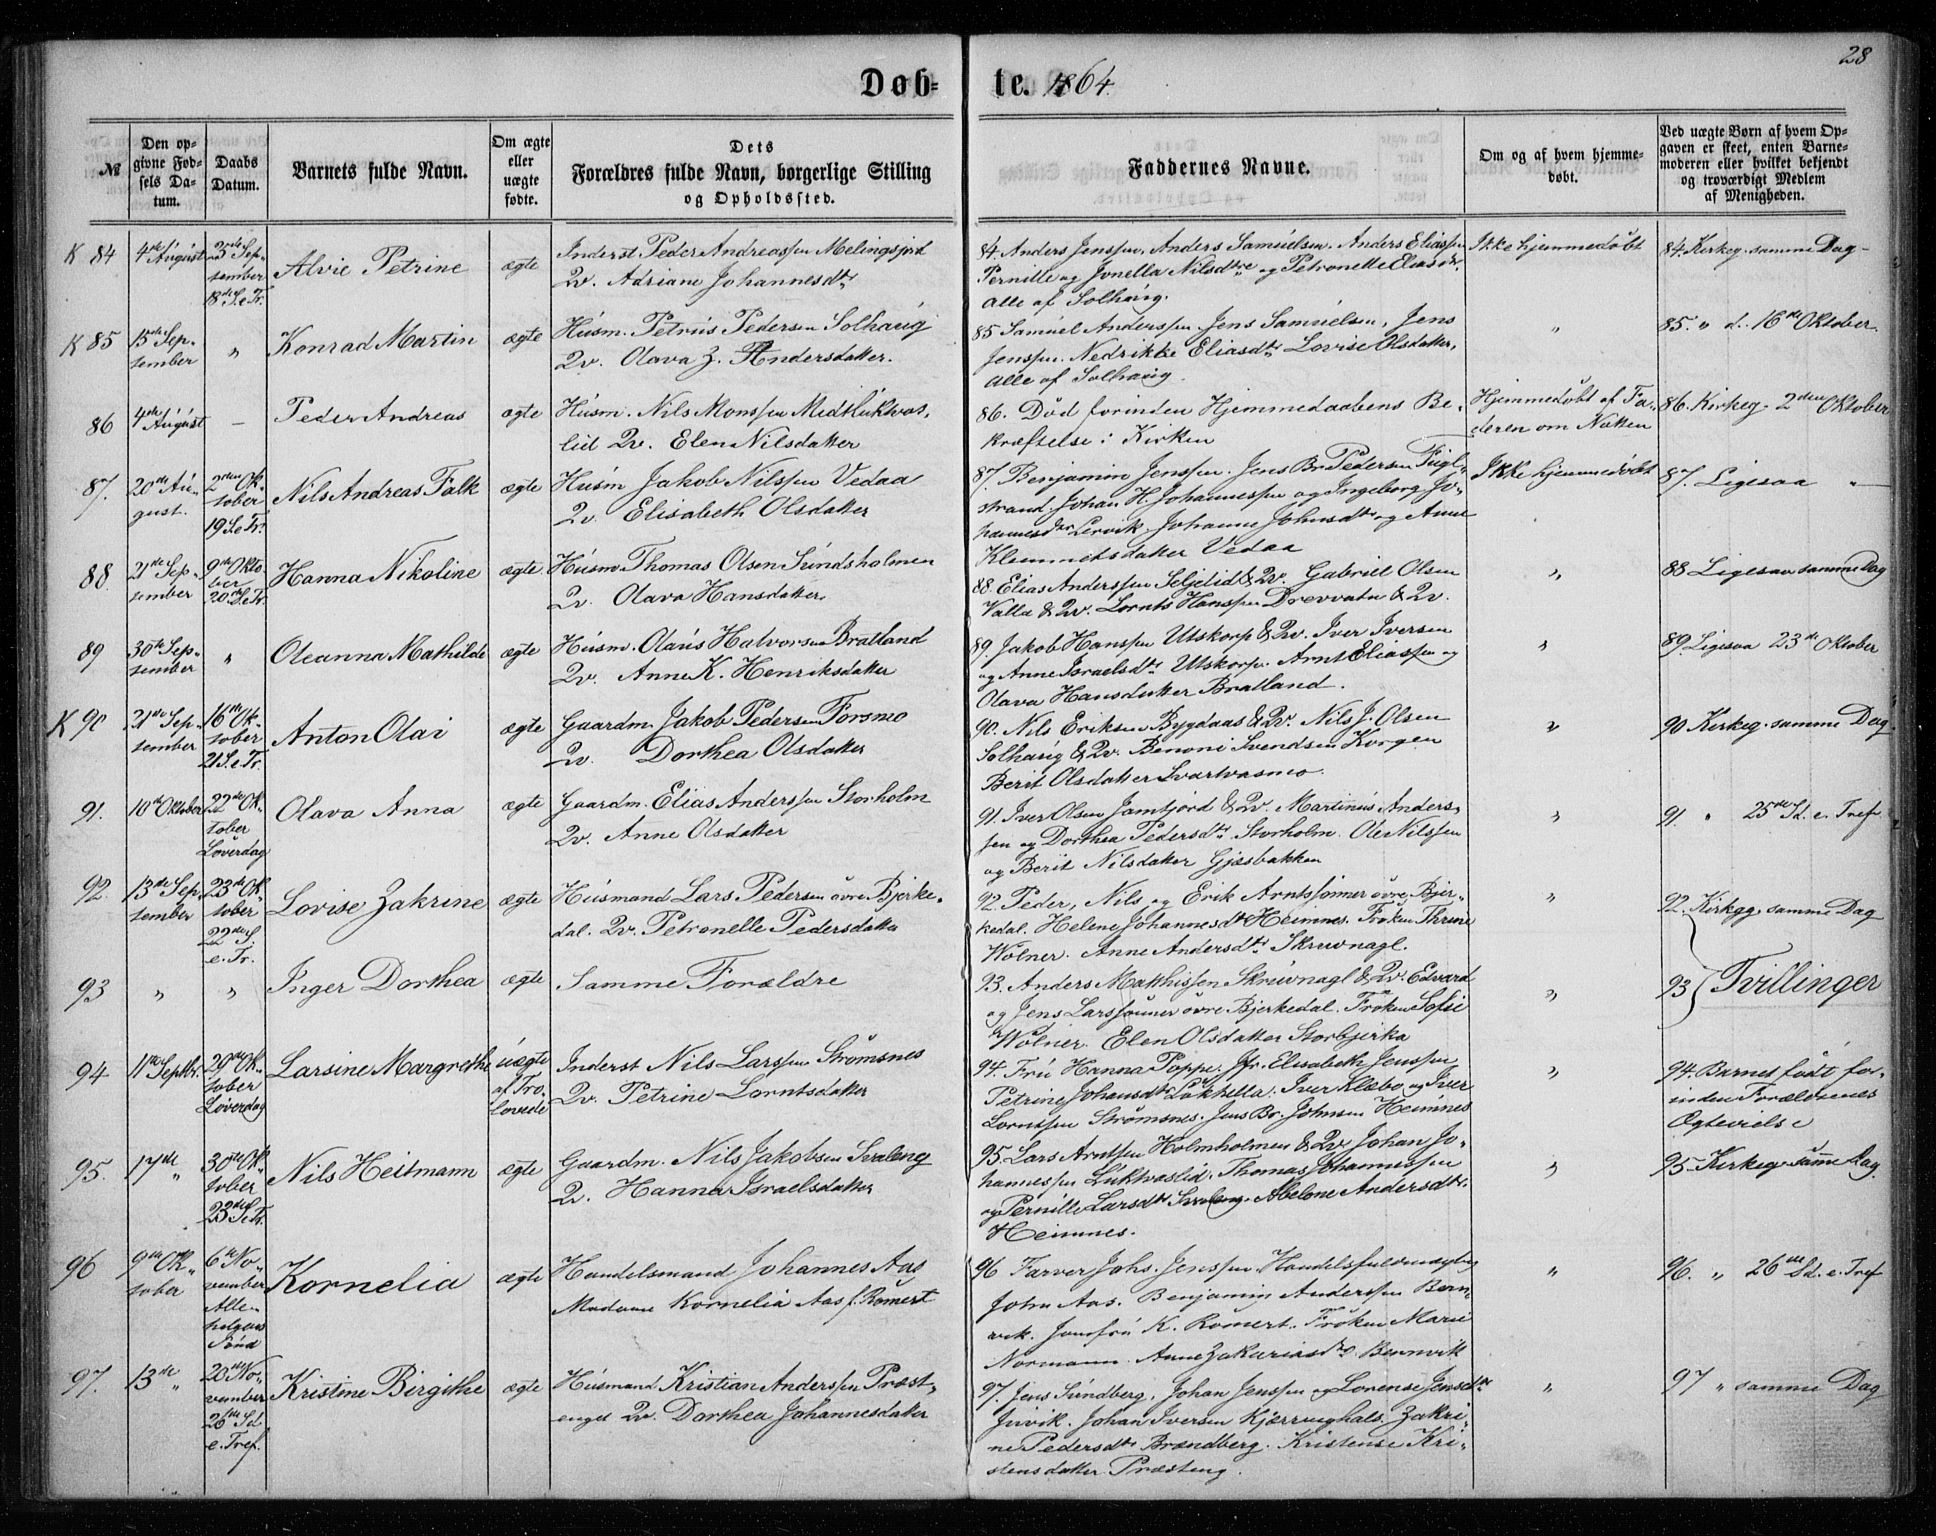 28
Døb-
te. 1864.
№
Den op-
givne Fød-
sels Da-
tum.
Daabs
Datum.
Barnets fulde Navn.
Om ægte
eller
uægte
fødte.
Dets
Forældres fulde Navn, borgerlige Stilling
og Opholdssted.
Faddernes Navne.
Om og af hvem hjemme-
døbt.
Ved uægte Børn af hvem Op-
gaven er skeet, enten Barne-
moderen eller hvilket bekjendt
og troværdigt Medlem
af Menigheden.
K 84
4de August
25de Sep-
tember
18de S. e. Tr.
Alvie Petrine
ægte
Inderst Peder Andreassen Melingsjord
Qv. Adriane Johannesdtr
84. Anders Jenssen, Anders Samuelsen. Anders Eliassen
Pernille og Jonella Nilsdtre og Petronelle Eliasdtr.
alle af Solhaug.
Ikke hjemmedøbt
84. Kirkeg. samme Dag
K 85
15de Sep-
tember
"
Konrad Martin
ægte
Husm. Petrus Pedersen Solhaug
Qv. Olava Z. Andersdatter.
85 Samuel Anderssen, Jens Samuelsen, Jens
Jenssen. Nedrikke Eliasdtr Lovise Olsdatter,
alle af Solhaug.
"
85. " d. 16de Oktober
86
4de August
–
Peder Andreas
ægte
Husm. Nils Monssen Midtluktvas-
lid Qv. Elen Nilsdatter
86. Død forinden Hjemmedaabens Be-
kræftelse i Kirken
Hjemmedøbt af Fa-
deren om Natten
86. Kirkeg. 2den Oktober
87.
20de Au-
gust.
2den Ok-
tober
19 S. e. Tr.
Nils Andreas Falk
ægte
Husm Jakob Nilssen Vedaa
Qv. Elisabeth Olsdatter
87. Benjamin Jenssen. Jens Br. Pedersen Fugl-
strand, Johan H. Johannessen og Ingeborg Jo-
hannesdtr Lervik, Johanne Johnsdtr og Anne
Klemmetsdatter Vedaa
Ikke hjemmedøbt
87. Ligesaa "
88.
21de Sep-
tember
9de Okto-
ber
20de S. e. Tr.
Hanna Nikoline
ægte
Husm Thomas Olsen Sundsholmen
Qv. Olava Hansdatter
88. Elias Anderssen Seljelid & Qv. Gabriel Olsen
Valla & Qv. Lornts Hanssen Drevvatn & Qv.
"
88 Ligesaa samme Dag
89
30te Sep-
tember
"
Oleanna Mathilde
ægte
Husm. Olaus Halvorsen Bratland
Qv. Anne K. Henriksdatter
89 Jakob Hanssen Utskorp & Qv. Iver Iversen
og Anne Israelsdtr Utskorp. Arnt Eliassen og
Olava Hansdatter Bratland.
"
89. Ligesaa 23de Oktober
K 90
21de Sep-
tember
16de Ok-
tober
21 S. e. Tr.
Anton Olai
ægte
Gaardm. Jakob Pedersen Forsmo
Qv. Dorthea Olsdatter
90. Nils Eriksen Bygdaas & Qv. Nils J. Olsen
Solhaug & Qv. Benoni Svendsen Korgen
Berit Olsdatter Svartvasmo.
"
90 Kirkeg. samme Dag
91.
10de Oktober
22de Ok-
tober
Løverdag
Olava Anna
ægte
Gaardm. Elias Anderssen Storholm
Qv. Anne Olsdatter
91. Iver Olsen Jamtjord & Qv. Martinus Anders-
sen og Dorthea Pedersdtr Storholm. Ole Nilssen
og Berit Nilsdatter Gjæsbakken
"
91. " 25de Sd. e. Tref
92
13de Sep-
tember
23de Ok-
tober
22de S.
e. Tr.
Lovise Zakrine
ægte
Husmand Lars Pedersen øvre Bjerke-
dal. Qv. Petronelle Pedersdatter
92. Peder, Nils og Erik Arntssønner øvre Bjer-
kedal. Helene Johannesdtr Hemnes. Frøken Thrine
Wolner. Anne Andersdtr Skruvnagl.
"
92. Kirkgg. samme Dag
93
"
"
Inger Dorthea
ægte
Samme Forældre
93. Anders Matthissen Skruvnagl & Qv. Edvard
og Jens Larssønner øvre Bjerkedal. Frøken Sofie
Wolner. Elen Olsdatter Storbjerka
"
93 Tvillinger
94
11te Septbr.
29de Ok-
tober
Løverdag
Larsine Margrethe
uægte
af Tro-
lovede
Inderst Nils Larssen Strømsnes
Qv. Petrine Lorntsdatter
94. Frú Hanna Poppe. Jfr. Elisabeth Jenssen
Petrine Johansdtr Lukhella. Iver Klæbo og Iver
Lorntssen Strømsnes. Jens Br. Johnsen Hemnes
"
94. Barnet født for-
inden Forældrenes
Ægtevielse
95.
17de "
30de Ok-
tober
23de S. e. Tr.
Nils Heitmann
ægte
Gaardm. Nils Jakobsen Svaleng
Q. Hanna Israelsdatter
95. Lars Arntsen Holmholmen & Qv. Johan Jo-
hannessen Luktvaslid. Thomas Johannessen
og Pernille Larsdtr Svaleng. Abelone Andersdtr.
Hemnes.
"
95. Kirkeg. samme Dag.
96
9de Ok-
tober
6te No-
vember
Alle-
helgens
Sønd
Kornelia
ægte
Handelsmand Johannes Aas
Madame Kornelia Aas f. Rømert
96 Farver Johs. Jenssen. Handelsfuldmægtig
John Aas. Benjamin Anderssen Benn-
vik. Jomfrú K. Romert. Frøken Marie
Normann. Anne Zakariasdtr. Bennvik
"
96. " 26de Sd. e. Tref
97.
13de "
20de No-
vember
26de Sd
e. Tref.
Kristine Birgithe
ægte
Husmand Kristian Anderssen Præst-
enget Qv. Dorthea Johannesdatter
97. Jens Sundberg, Johan Jenssen og Lorense Jensdtr
Juvik. Johan Iversen Kjærringhals. Zakri-
ne Pedersdtr Brændberg. Kristense Kri-
stensdatter Præsteng.
"
97 " samme Dag